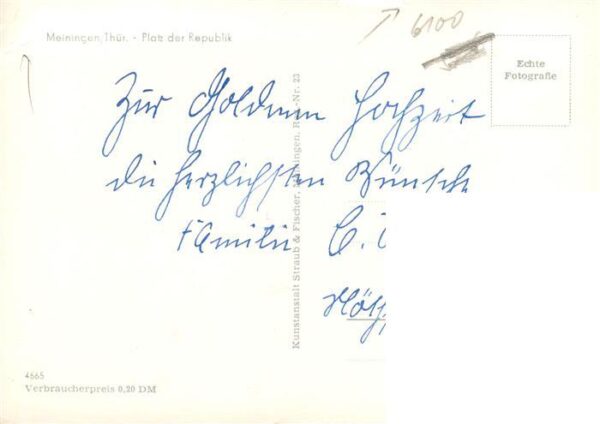 Meiningen, Thür. - Platz der Republik
6100
Echte
Fotografie
Zur Goldenen Hochzeit
die herzlichsten Wünsche
Familie C.
Kunstanstalt Straub & Fischer, Meiningen, Reg.-Nr. 23
4665
Verbraucherpreis 0,20 DM